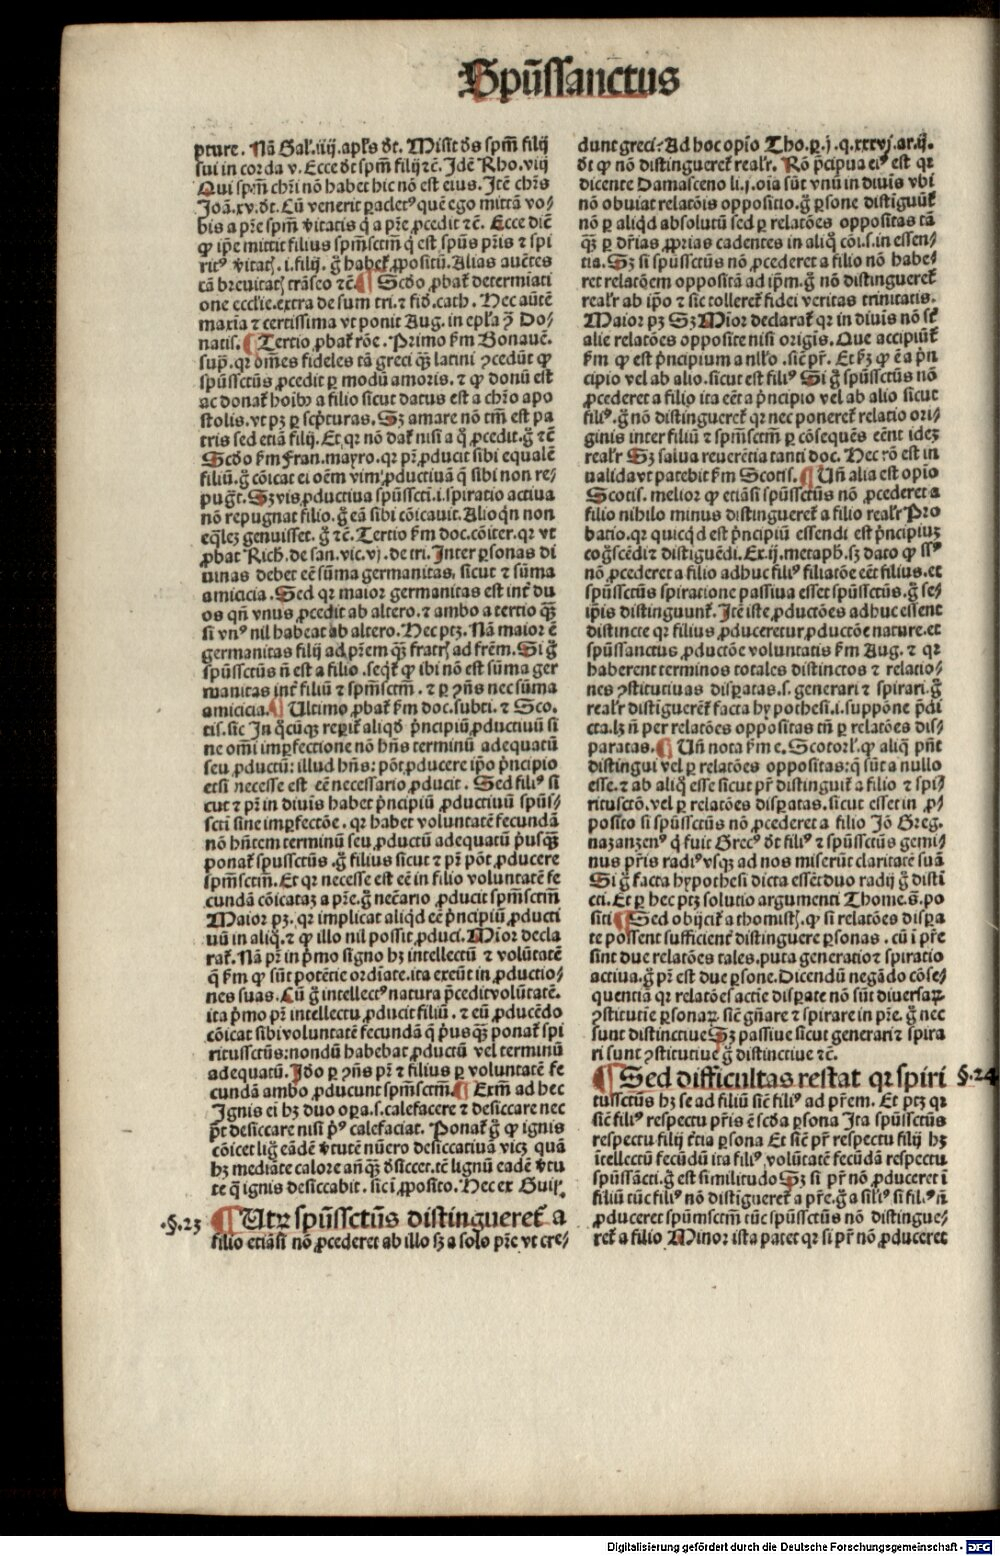 Spūssanctus
pture. Nā Gal̄.iiij. apl's dt. Misit ds spm̄ filij
sui in corda v. Ecce dt spm̄ filij ⁊c̄. Idē Rho.viij
Qui spm̄ chri nō habet hic nō est eius. Itē chr̄s
Joā.xv.dt. Cū venerit ꝑacletꝰ quē ego mittā vo-
bis a pr̄e spm̄ v̄itatis q̇ a pr̄e ꝓcedit ⁊c̄. Ecce diē
ꝙ ip̄e mittit filius spm̄sctm̄ q̇ est spūs pr̄is ⁊ spi
ritꝰ v̄itatꝭ.i.filij. g̊ habet̄ ꝓpositū. Alias auc̄tes
cā breuitatꝭ trāseo ⁊c̄. ¶ Scd̄o ꝓbat̄ determiati
one eccl'ie. extra de sum tri. ⁊ fid̄. cath. Hec aūtē
maxīa ⁊ certissima vt ponit Aug. in epl'a ↄ̄ Do-
natis. ¶ Tertio ꝓbat̄ rōe. Primo ẜm Bonauē.
sup̄. qr om̄es fideles tā greci qꝫ latini ↄcedūt ꝙ
spūssctūs ꝓcedit ꝑ modū amoris. ⁊ ꝙ donū est
ac donat̄ hoib9 a filio sicut datus est a chr̄o apo
stolis. vt pꝫ ꝑ sc'pturas. Sꝫ amare nō tm̄ est pa
tris sed etiā filij. Et qr nō dat̄ nisi a q̊ ꝓcedit. g̊ ⁊c̄
Scd̄o ẜm Fran. mayro. qr pr̄ ꝓducit sibi equalē
filiū. g̊ cōicat ei oēm vim ꝓductiuā q̄ sibi non re-
pug̊t. Sꝫ vis ꝓductiua spūsscti .i. spiratio actiua
nō repugnat filio. g̊ eā sibi cōicauit. Alioqn̄ non
eq̄lez genuisset. g̊ ⁊c̄. Tertio ẜm doc. cōiter. qr vt
ꝓbat Rich. de san. vic. vj. de tri. Inter ꝑsonas di
uinas debet eē sūma germanitas. sicut ⁊ sūma
amicicia. Sed qr maior germanitas est int̄ du
os qn̄ vnus ꝓcedit ab altero. ⁊ ambo a tertio qꝫ
si vnꝰ nil habeat ab altero. Hec ptꝫ. Nā maior ē
germanitas filij ad pr̄em qꝫ fratrꝭ ad frēm. Si g̊
spūssctūs n̄ est a filio. seqt̄ ꝙ ibi nō est sūma ger
manitas int̄ filiū ⁊ spm̄sctm̄. ⁊ ꝑ ↄn̄s nec sūma
amicicia. ¶ Ultimo ꝓbat̄ ẜm doc. subti. ⁊ Sco.
tis. sic In q̊cūqꝫ reperit̄ aliqd̄ p̄ncipiū ꝓductiuū si
ne om̄i imꝑfectione nō hn̄s terminū adequatū
seu ꝓductū: illud hn̄s: pōt ꝓducere ip̄o p̄ncipio
etsi necesse est eē necessario ꝓducit. Sed filiꝰ si
cut ⁊ pr̄ in diuīs habet p̄ncipiū ꝓductiuū spūs-
scti sine imꝑfectōe. qr habet voluntatē fecundā
nō hn̄tem terminū seu ꝓductū adequatū pūsqꝫ
ponat̄ spussctūs. g̊ filius sicut ⁊ pr̄ pōt ꝓducere
spm̄sctm̄. Et qr necesse est eē in filio voluntatē fe
cundā cōicataꝫ a pr̄e. g̊ nec̄ario ꝓducit spm̄sctm̄
Maior pꝫ. qr implicat aliqd̄ eē p̄ncipiū ꝓducti
uū in aliq̊. ⁊ ꝙ illo nil possit ꝓduci. Mīor decla
rat̄. Nā pr̄ in p̄mo signo hꝫ intellectū ⁊ volūtatē
q̄ ẜm ꝙ sūt potētie ordīate. ita exeūt in ꝓductio-
nes suas. Cū g̊ intellectꝰ natura p̄cedit volūtatē.
ita p̄mo pr̄ intellectu ꝓducit filiū. ⁊ eū ꝓducēdo
cōicat sibi voluntatē fecundā q̄ pūsqꝫ ponat̄ spi
ritussctūs: nondū habebat ꝓductū vel terminū
adequatū. Ido ꝑ ↄn̄s pr̄ ⁊ filius ꝑ voluntatē fe
cundā ambo ꝓducunt spm̄sctm̄. ¶ Exm̄ ad hec
Ignis ei hꝫ duo oꝑa.s. calefacere ⁊ desiccare nec
p̄t desiccare nisi pꝰ calefaciat. Ponat̄ g̊ ꝙ ignis
cōicet lig̊ eādē v̄tutē nūero desiccatiuā vicꝫ quā
hꝫ mediāte calore an̄ qꝫ dsiccet. tē lignū eadē v̄tu
te q̄ ignis desiccabit. sic ī ꝓposito. Hec ex Guil'.
·§.23 ¶ Utrꝫ spūssctūs distingueret̄ a
filio etiāsi nō ꝓcederet ab illo sꝫ a solo pr̄e vt cre-
dunt greci. Ad hoc opīo Tho.p.j.q.xxxvj.ar.ij.
dt ꝙ nō distingueret̄ realr̄. Rō p̄cipua eiꝰ est qr
dicente Damasceno li.j. oīa sūt vnū in diuīs vbi
nō obuiat relatōis oppositio. g̊ ꝑsone distīguūt̄
nō ꝑ aliqd̄ absolutū sed ꝑ relatōes oppositas tā
qꝫ ꝑ dr̄ias ꝓprias cadentes in aliq̊ cōi.s. in essen-
tia. Sꝫ si spūssctūs nō ꝓcederet a filio nō habe-
ret relatōem oppositā ad ip̄m. g̊ nō distingueret̄
realr̄ ab ip̄o ⁊ sic tolleret̄ fidei veritas trinitatis.
Maior pꝫ Sꝫ Mīor declarat̄ qr in diuīs nō st̄
alie relatōes opposite nisi origīs. Que accipiūt̄
ẜm ꝙ est p̄ncipium a nllo. sic̄ pr̄. Et ẜꝫ ꝙ ē a p̄n
cipio vel ab alio. sicut est filiꝰ Si g̊ spūssctūs nō
ꝓcederet a filio ita eēt a p̄ncipio vel ab alio sicut
filiꝰ. g̊ nō distingueret̄ qr nec poneret̄ relatio ori-
ginis inter filiū ⁊ spm̄sctm̄ ꝑ cōsequēs eēnt idez
realr̄ Sꝫ salua reuerētia tanti doc. Hec rō est in
ualida vt patebit ẜm Scotis. ¶ Un̄ alia est opīo
Scotis. melior ꝙ etiāsi spūssctūs nō ꝓcederet a
filio nihilo minus distingueret̄ a filio realr̄ Pro
batio. qr quicqd̄ est p̄ncipiū essendi est p̄ncipiuꝫ
cog̊scēdi ⁊ distiguēdi. Ex.ij. metaph. sꝫ dato ꝙ ssꝰ
nō ꝓcederet a filio adhuc filiꝰ filiatōe eēt filius. et
spūssctūs spiratione passiua esset spūssctūs. g̊ se-
ip̄is distinguunt̄. Itē iste ꝓductōes adhuc essent
distincte qr filius ꝓduceretur ꝓductōe nature. et
spūssanctus ꝓductōe voluntatis ẜm Aug. ⁊ qr
haberent terminos totales distinctos ⁊ relatio-
nes ↄstitutiuas disꝑatas.s. generari ⁊ spirari. g̊
realr̄ distīguerēt̄ facta hypothesi.i. suppōne p̄di
cta. lꝫ n̄ per relatōes oppositas tn̄ ꝑ relatōes dis-
paratas. ¶ Un̄ nota ẜm e. Scotorꝭ. ꝙ aliq̄ pn̄t
distingui vel ꝑ relatōes oppositas: q̄ sūt a nullo
esse. ⁊ ab aliq̊ esse sicut pr̄ distinguit̄ a filio ⁊ spi-
ritusctō. vel ꝑ relatōes disꝑatas. sicut esset in ꝓ-
posito si spūssctūs nō ꝓcederet a filio Jō Greg.
nazanzenꝰ q̇ fuit Grecꝰ dt filiꝰ ⁊ spūssctūs gemi-
nus pr̄is radiꝰ vsqꝫ ad nos miserūt claritatē suā
Si g̊ facta hypothesi dicta essēt duo radij g̊ disti
cti. Et ꝑ hec ptꝫ solutio argumenti Thome. s̄. po
siti ¶ Sed obijcit̄ a thomistꝭ. ꝙ si relatōes disꝑa
te possent sufficient̄ distinguere ꝑsonas. cū ī pr̄e
sint due relatōes tales. puta generatio ⁊ spiratio
actiua. g̊ pr̄ est due ꝑsone. Dicendū negādo cōse-
quentiā qr relatōes actīe disꝑate nō sūt diuersaꝝ
ↄstitutīe ꝑsonaꝝ. sic̄ gn̄are ⁊ spirare in pr̄e. g̊ nec
sunt distinctiue Sꝫ passiue sicut generari ⁊ spira
ri sunt ↄstitutiue g̊ distinctiue ⁊c̄.
¶ Sed difficultas restat qr spiri §.24
tussctūs hꝫ se ad filiū sic̄ filiꝰ ad pr̄em. Et ptꝫ qr
sic̄ filiꝰ respectu pr̄is ē scd̄a ꝑsona Ita spūssctūs
respectu filij t̄tia ꝑsona Et sic̄ pr̄ respectu filij hꝫ
ītellectū fecūdū ita filiꝰ volūtatē fecūdā respectu
spūssācti. g̊ est similitudo Sꝫ si pr̄ nō ꝓduceret ī
filiū tūc filiꝰ nō distīgueret̄ a pr̄e. g̊ a sil'i si filꝰ n̄
ꝓduceret spūmsctm̄ tūc spūssctūs nō distingue-
ret̄ a filio Minor ista patet qr si pr̄ nō ꝓduceret
Digitalisierung gefördert durch die Deutsche Forschungsgemeinschaft - DFG